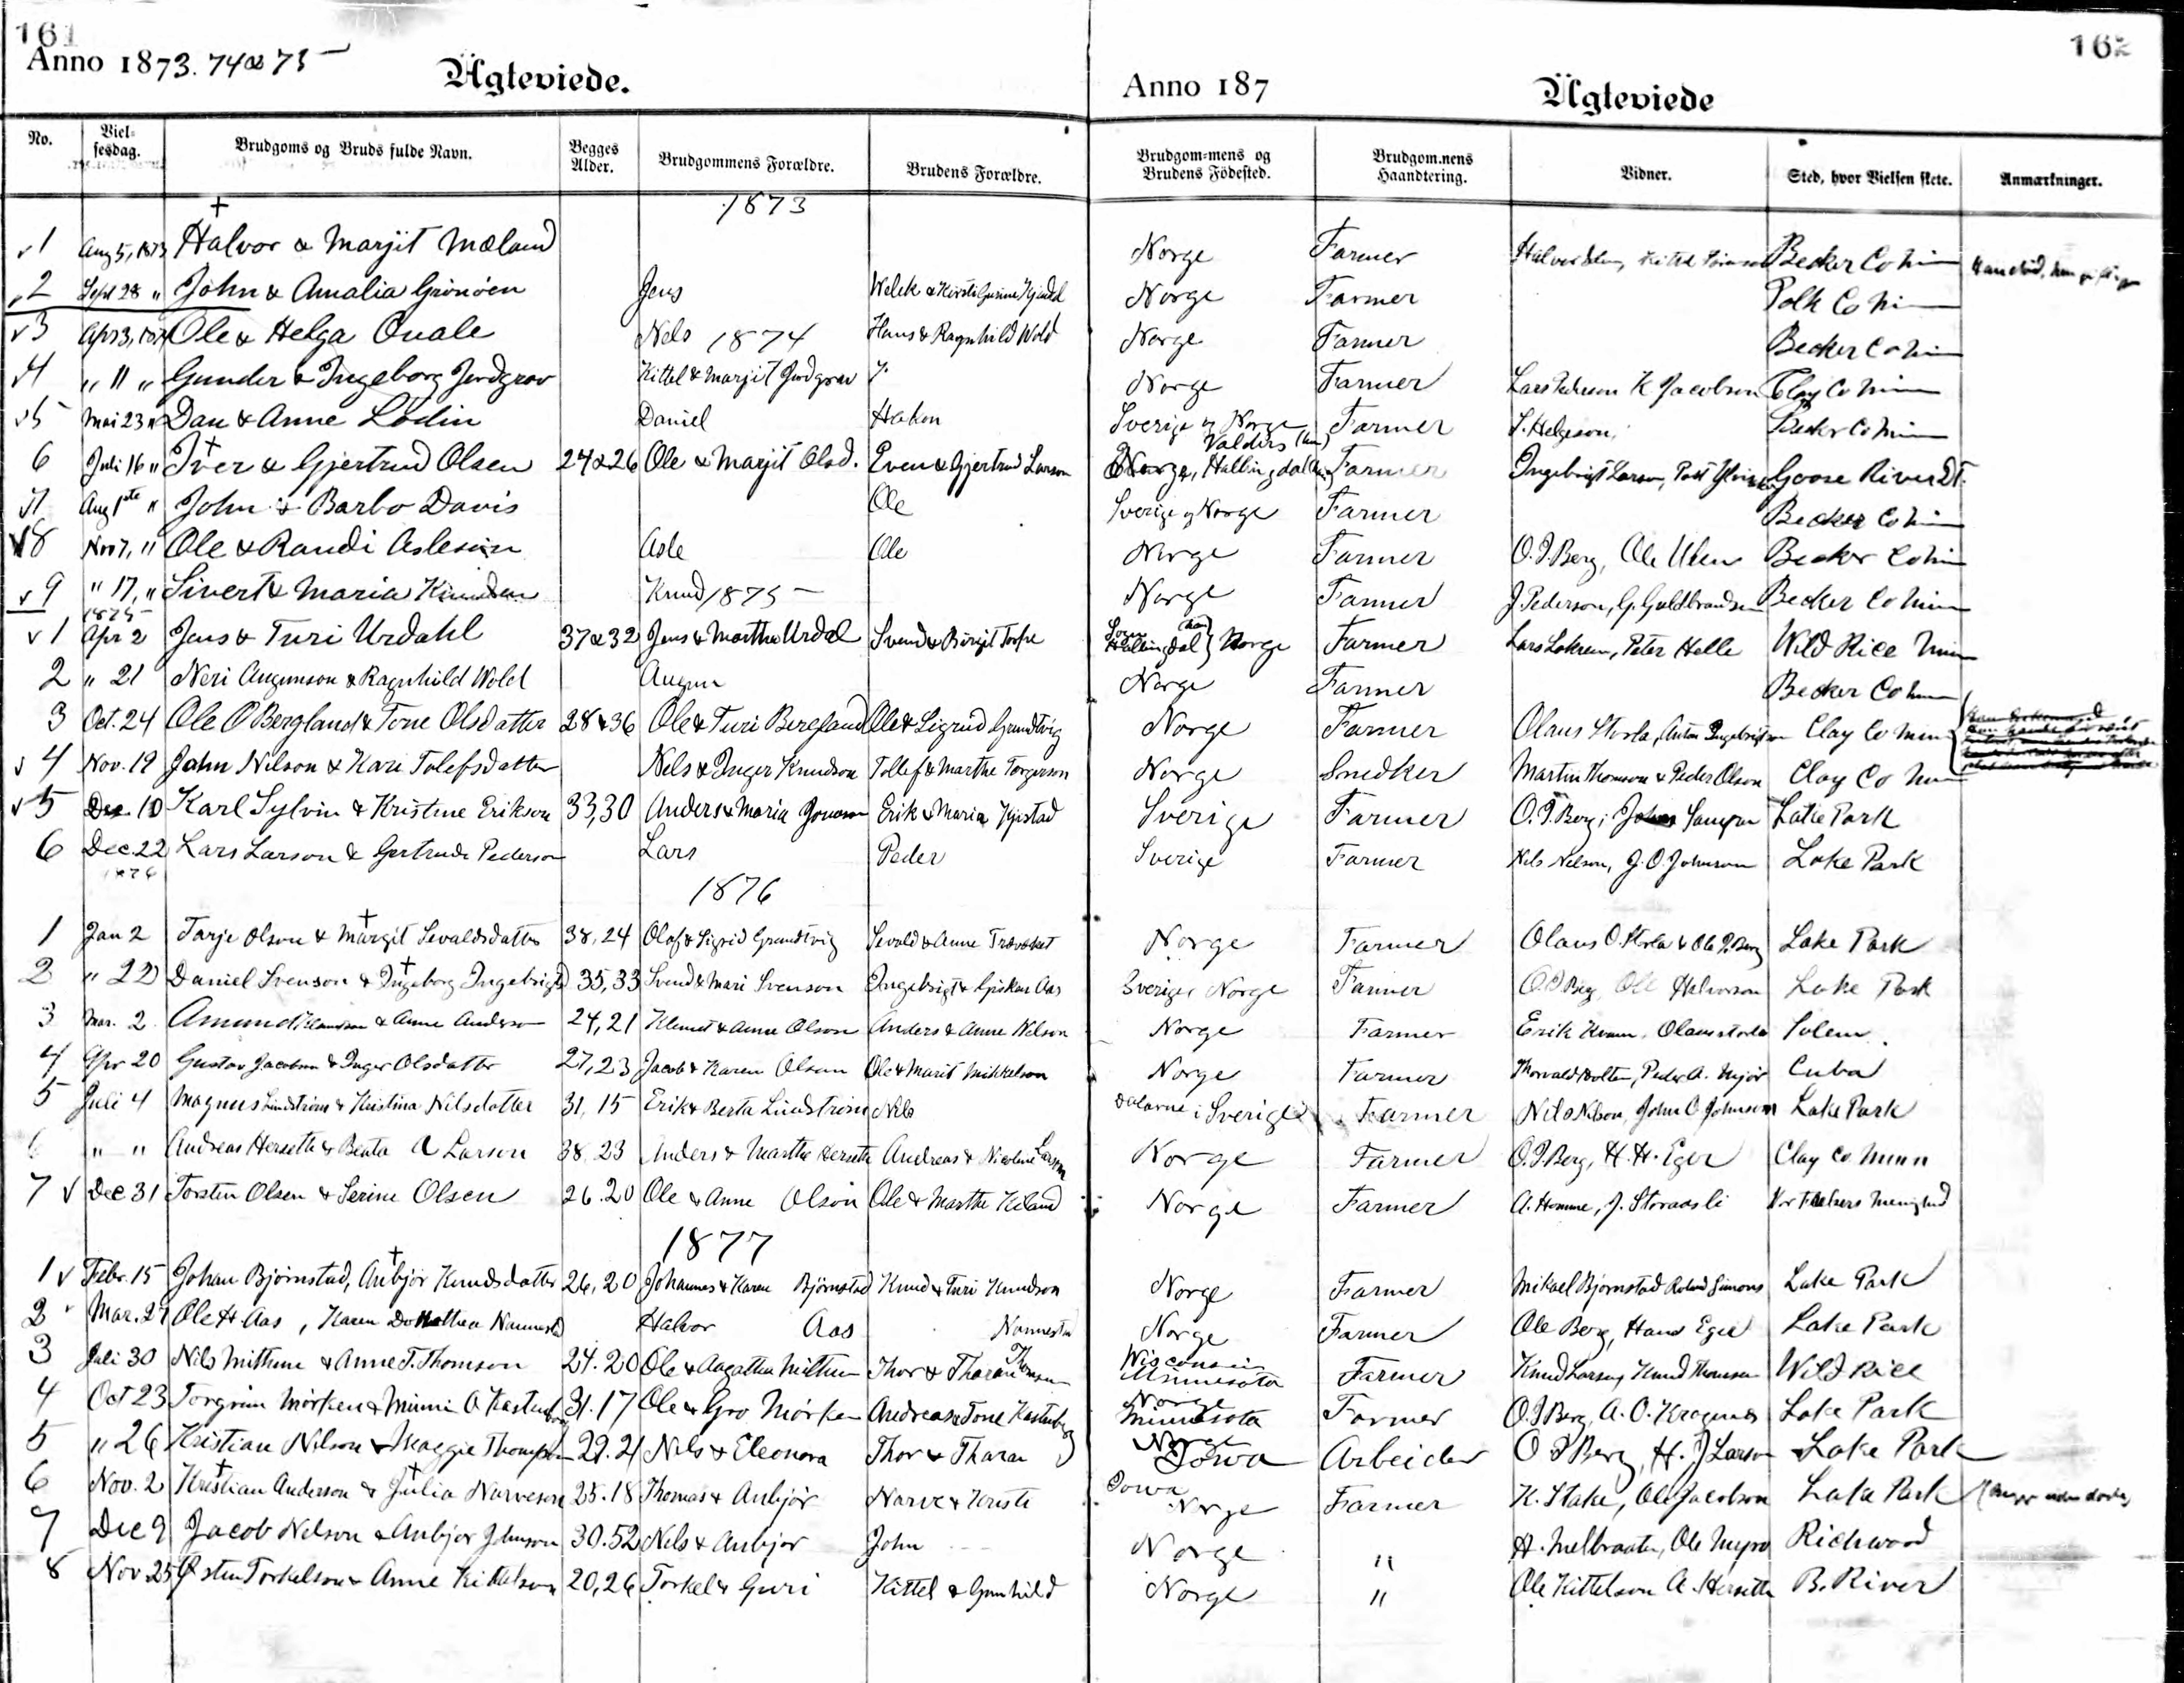 161
162
Anno 1873. 74 & 75
Ägteviede.
Anno 187
Ägteviede
No. Viel-sesdag. Brudgoms og Bruds fulde Navn. Begges Alder. Brudgommens Forældre. Brudens Forældre. Brudgom-mens og Brudens Födested. Brudgom.nens Haandtering. Vidner. Sted, hvor Vielsen skete. Anmærkninger.
1873
1 Aug 5, 1873 Halvor & Marjit Mæland Norge Farmer Becker Co Min
2 Sept 28 " John & Amalia Grönöen Jens Norge Farmer Polk Co Min
1874
3 Apr 3, Ole & Helga Quale Nels Hans & Ragnhild Wold Norge Farmer Becker Co Min
4 " 11 " Gunder & Ingeborg Jordgrav Kittel & Marjit Jordgrav Norge Farmer K Jacobson Clay Co Min
5 Mai 23 " Dan & Anne Lodin Daniel Haken Sverige og Norge Farmer S. Helgeson, Becker Co Min
6 Juli 16 " Iver & Gjertrud Olsen 24 & 26 Ole & Marjit Olsd. Even & Gjertrud Larson Valders Norge, Hallingdal Farmer Ingebrigt Larson, Goose River D.T.
7 Aug 1ste " John & Barbo Davis Ole Sverige og Norge Farmer Becker Co Min
8 Nov 7, " Ole & Randi Asleson Asle Ole Norge Farmer O. J. Berg, Ole Ulen Becker Co Min
9 " 17, " Sivert & Maria Knudsen Knud Norge Farmer J. Pederson, G. Guldbrandsen Becker Co Min
1875
1875
1 Apr 2 Jens & Turi Urdahl 37 & 32 Jens & Martha Urdal Svend & Birgit Torfre Sogn Hallingdal } Norge Farmer Lars Lokren, Peter Helle Wild Rice Min
2 " 21 Neri Augunson & Ragnhild Wold Augun Norge Farmer Becker Co Min
3 Oct. 24 Ole O Bergland & Tone Olsdatter 28 & 36 Ole & Turi Bergland Ole & Sigrid Grundtvig Norge Farmer Olaus Storla, Anton Ingebrigtson Clay Co Minn
4 Nov. 19 John Nilson & Kari Tolefsdatter Nels & Inger Knudson Tollef & Marthe Torgerson Norge Snedker Martin Thomson & Peder Olson Clay Co Min
5 Dec. 10 Karl Sylvin & Kristine Erikson 33,30 Anders & Maria Jonason Erik & Maria Sverige Farmer O. J. Berg, Lake Park
6 Dec. 22 Lars Larson & Gertrude Pederson Lars Peder Sverige Farmer Nels Nelson, J. O. Johnson Lake Park
1876
1876
1 Jan 2 Tarje Olson & Margit Sevaldsdatter 38,24 Olof & Sigrid Grundtvig Sevold & Anne Norge Farmer Olaus O. Storla & Ole J. Berg Lake Park
2 " 22 Daniel Svenson & Ingeborg Ingebrigtsd 35,33 Svend & Mari Svenson Ingebrigt & Aas Sverige Norge Farmer O J Berg, Ole Halvorson Lake Park
3 Mar. 2 Amund Klemetson & Anne Anderson 24,21 Klemet & Anne Olson Anders & Anne Nilson Norge Farmer Erik Kvam, Olaus Storla Solem.
4 Apr 20 Gustav Jacobson & Inger Olsdatter 27,23 Jacob & Karen Olson Ole & Marit Mikkelson Norge Farmer Thorvald Holten, Peder A. Cuba
5 Juli 4 Magnus Lindström & Kristina Nilsdatter 31,15 Erik & Berta Lindström Nils Dalarne i Sverige Farmer Nils Nilson, John O Johnson Lake Park
6 " " Andreas Herseth & Beata A Larson 38.23 Anders & Marthe Herseth Andreas & Nicoline Larson Norge Farmer O. J. Berg, H. H. Eger Clay Co Minn
7 Dec 31 Torsten Olsen & Serine Olsen 26.20 Ole & Anne Olson Ole & Marthe Kiland Norge Farmer A. Homme, J. Storaasli Vor Frelsers Menighed
1877
1 Febr. 15 Johan Björnstad, Anbjör Knudsdatter 26,20 Johannes & Karen Björnstad Knud & Turi Knudson Norge Farmer Mikael Björnstad Roland Simons Lake Park
2 Mar. 27 Ole H. Aas, Karen Dorothea Nannestad Halvor Aas Nannestad Norge Farmer Ole Berg, Hans Eger Lake Park
3 Juli 30 Nils Mithun & Anne T. Thomson 24.20 Ole & Aagatha Mithun Thor & Tharan Thomson Wisconsin Minnesota Farmer Knud Larson, Knud Thomson Wild Rice
4 Oct 23 Torgrim Mörken & Minnie A Kastenborg 31.17 Ole & Gro Mörken Andreas & Tone Kastenborg Norge Minnesota Farmer O. J. Berg, A. O. Kragnes Lake Park
5 " 26 Kristian Nilson & Maggie Thompson 29.21 Nils & Eleonora Thor & Tharan Norge Iowa Arbeider O J Berg, H. J Larson Lake Park
6 Nov. 2 Kristian Anderson & Julia Narveson 25.18 Thomas & Anbjör Narve & Kristi Iowa Norge Farmer K. Stake, Ole Jacobson Lake Park
7 Dec 9 Jacob Nelson & Anbjor Johnson 30.52 Nels & Anbjor John Norge " H. Melbraaten, Ole Myro Richwood
8 Nov 25 Östen Torkelson & Anne Kittelson 20,26 Torkel & Guri Kittel & Gunhild Norge " Ole Kittelson A. Herseth B. River